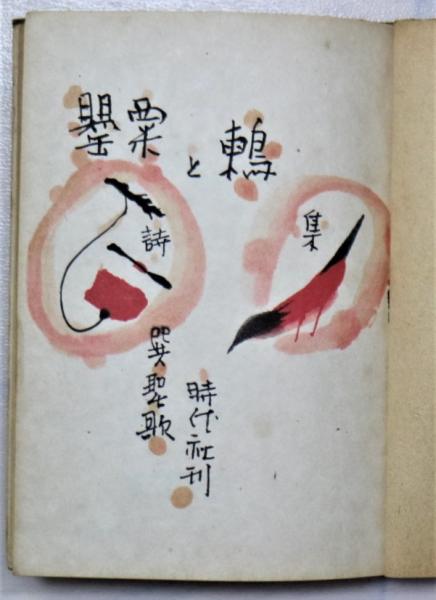 罌粟と鶇
詩集
巽聖歌
時代社刊